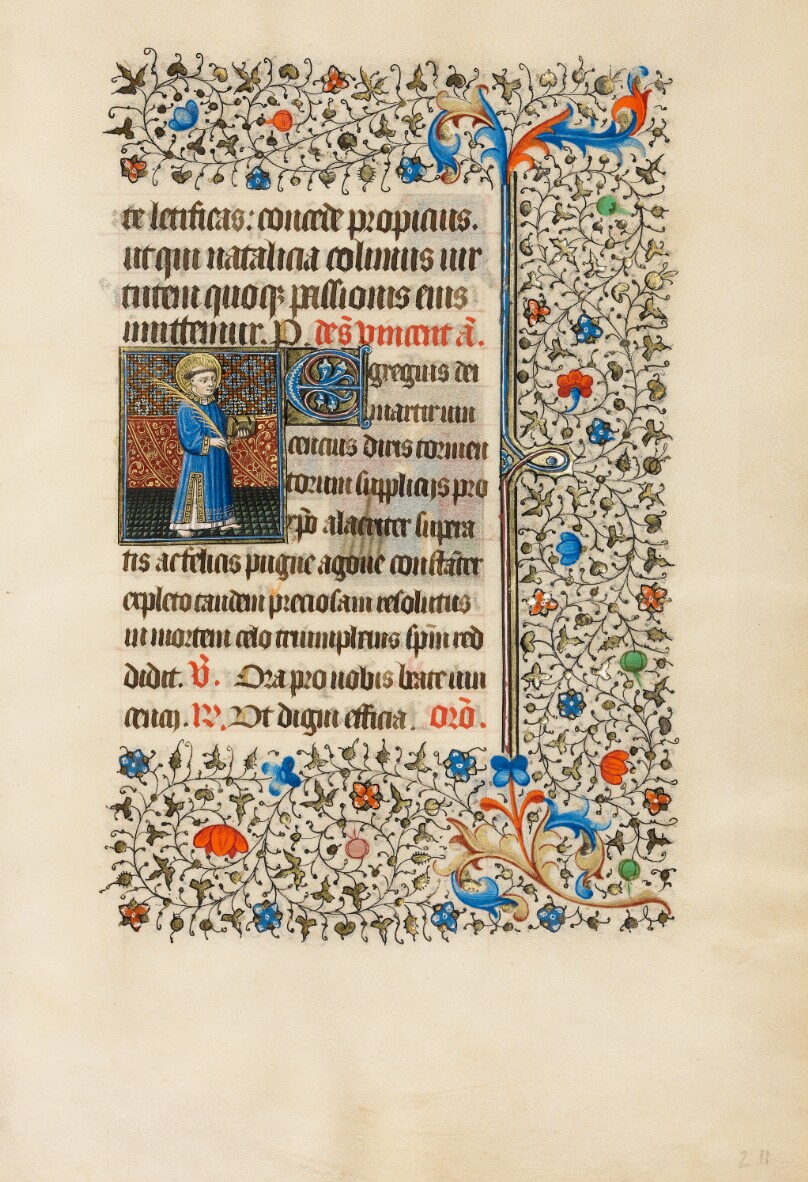 te letificas: concede propicius.
ut qui natalicia colimus vir
tutem quoqꝫ passionis eius
imittemur. P. de sc̃o vincent ã.
Egregius dei
martir vin
cencius diris tormen
torum supplicijs pro
xp̃o alacriter supera
tis ac felicis pugne agone constãter
expleto tandem preciosam resolutus
in mortem celo triumphans sp̃m red
didit. V̄. Ora pro nobis beate vin
cencij. R̄. Ut digni efficia. Orõ.